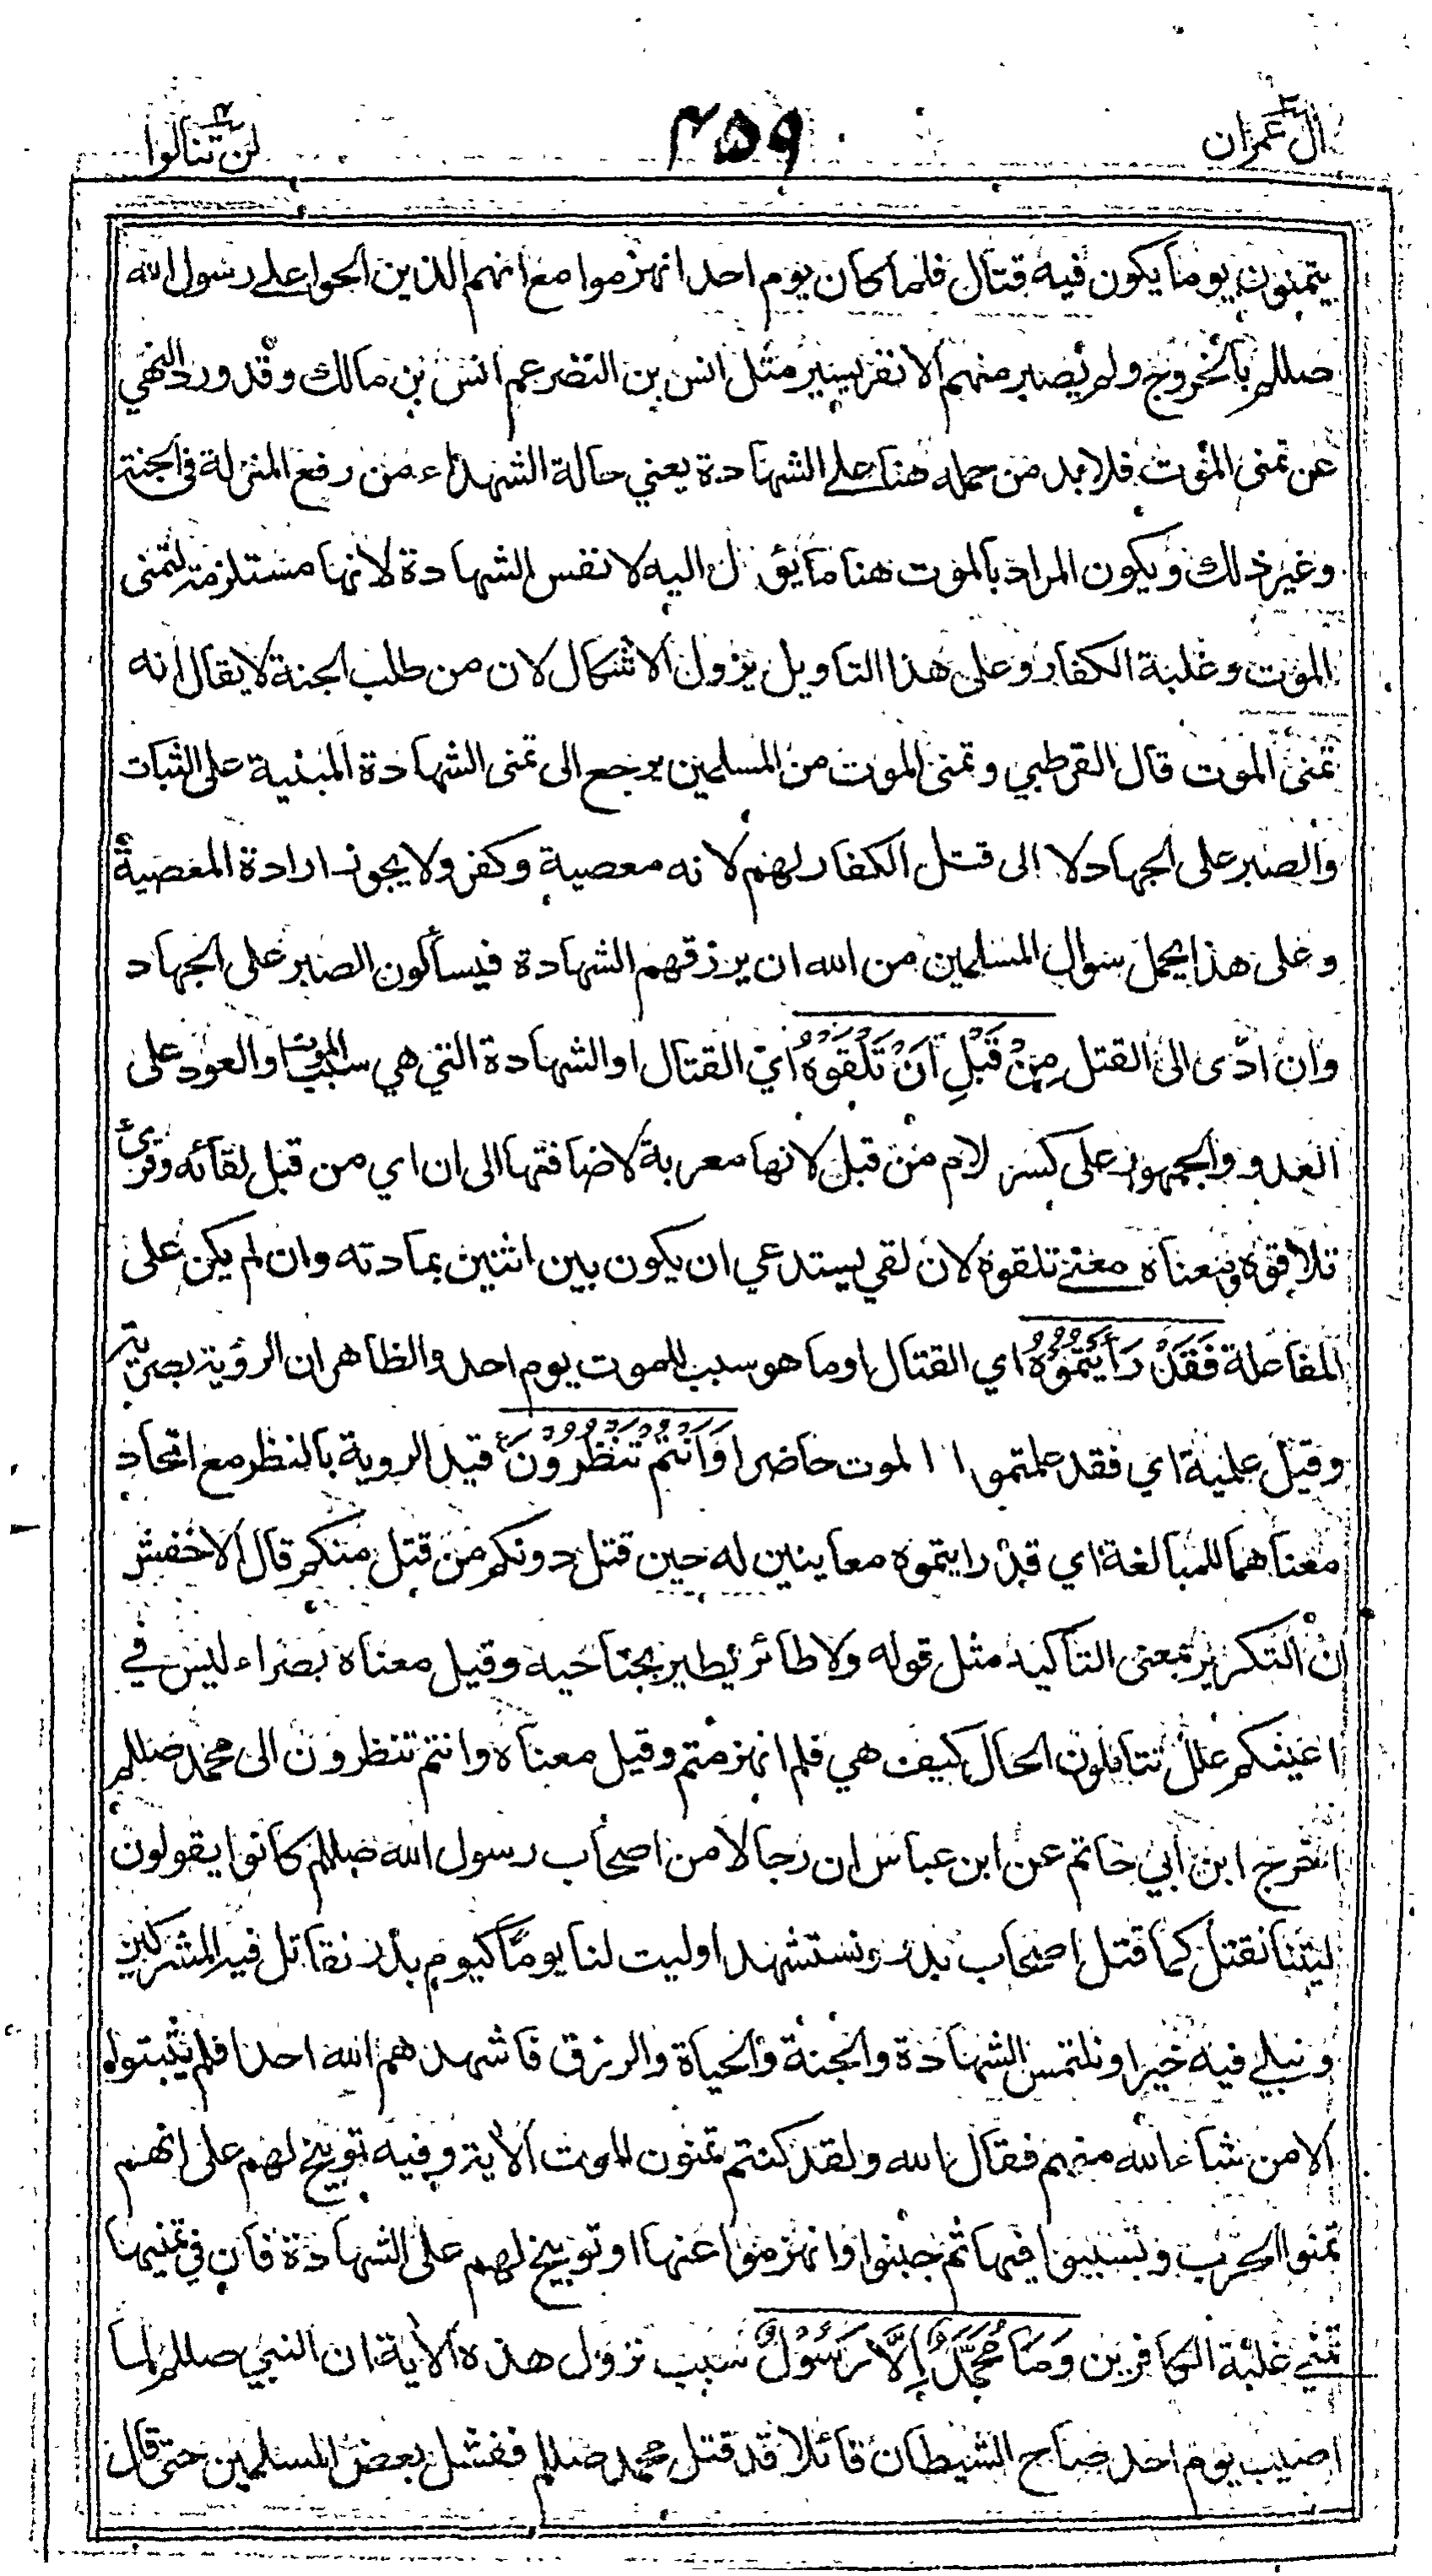 آل عمران ٣
٤٥٩
لن تنالوا ٤
يتمنون يوما يكون فيه قتال فلما كان يوم احد انهزموا مع انهم الذين الحوا على رسول الله
صللم بالخروج ولم يصبر منهم الا نفر يسير مثل انس بن النضر عم انس بن مالك وقد ورد النهي
عن تمنى الموت فلا بد من حمله هنا على الشهادة يعني حالة الشهداء من رفع المنزلة في الجنة
وغير ذلك ويكون المراد بالموت هنا ما يؤل اليه لا نفس الشهادة لانها مستلزمة لتمنى
الموت وغلبة الكفار وعلى هذا التاويل يزول الاشكال لان من طلب الجنة لا يقال انه
تمنى الموت قال القرطبي وتمنى الموت من المسلمين يرجع الى تمنى الشهادة المبنية على الثبات
والصبر على الجهاد لا الى قتل الكفار لهم لانه معصية وكفر ولا يجوز ارادة المعصية
وعلى هذا يحمل سوال المسلمين من الله ان يرزقهم الشهادة فيسألون الصبر على الجهاد
وان ادّى الى القتل مِنْ قَبْلِ اَنْ تَلْقَوْهُ اي القتال او الشهادة التي هي سبب الموت او العود على
العدو والجمهور على كسر لام من قبل لانها معربة لاضافتها الى ان اي من قبل لقائه وقرئ
تلاقوه ومعناه معنى تلقوه لان لقي يستدعي ان يكون بين اثنين بمادته وان لم يكن على
المفاعلة فَقَدْ رَاَيْتُمُوْهُ اي القتال او ما هو سبب للموت يوم احد والظاهر ان الرؤية بصرية
وقيل علمية اي فقد علمتموا الموت حاضرا وَاَنْتُمْ تَنْظُرُوْنَ قيد الروية بالنظر مع اتحاد
معناهما للمبالغة اي قد رايتموه معاينين له حين قتل دونكم من قتل منكم قال الاخفش
ان التكرير بمعنى التأكيد مثل قوله ولا طائر يطير بجناحيه وقيل معناه بصراء ليس في
اعينكم علل تتاملون الحال كيف هي فلم انهزمتم وقيل معناه وانتم تنظرون الى محمد صللم
اخرج ابن ابي حاتم عن ابن عباس ان رجالا من اصحاب رسول الله صللم كانوا يقولون
ليتنا نقتل كما قتل اصحاب بدر ونستشهد او ليت لنا يوما كيوم بدر نقاتل فيه المشركين
ونبلي فيه خيرا ونلتمس الشهادة والجنة والحياة والرزق فاشهدهم الله احدا فلم يثبتوا
الا من شاء الله منهم فقال الله ولقد كنتم تمنون الموت الاية وفيه توبيخ لهم على انهم
تمنوا الحرب وتسببوا فيها ثم جبنوا وانهزموا عنها او توبيخ لهم على الشهادة فان في تمنيها
تمني غلبة الكافرين وَمَا مُحَمَّدٌ اِلَّا رَسُوْلٌ سبب نزول هذه الأية ان النبي صللم لما
اصيب يوم احد صاح الشيطان قائلا قد قتل محمد صللم ففشل بعض المسلمين حتى قال